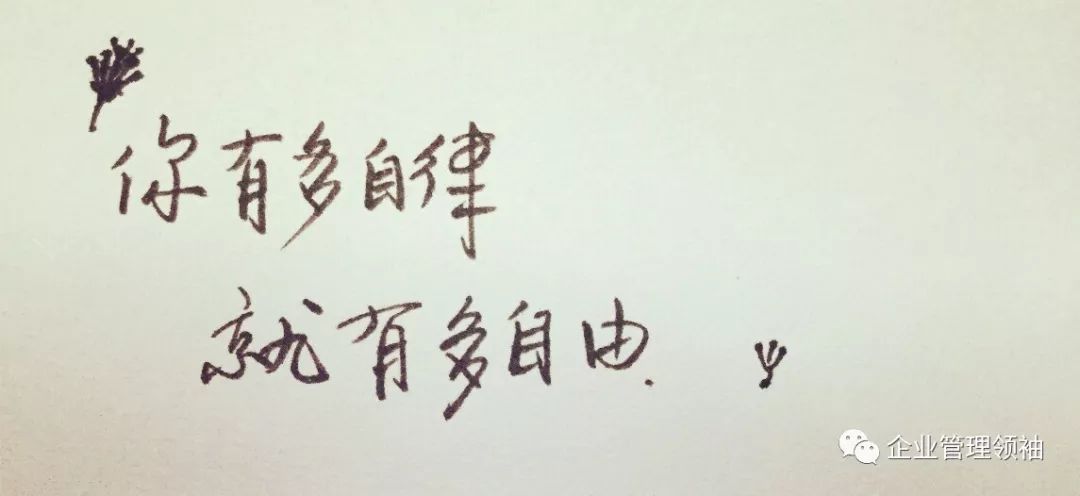 你有多自律
就有多自由.
企业管理领袖